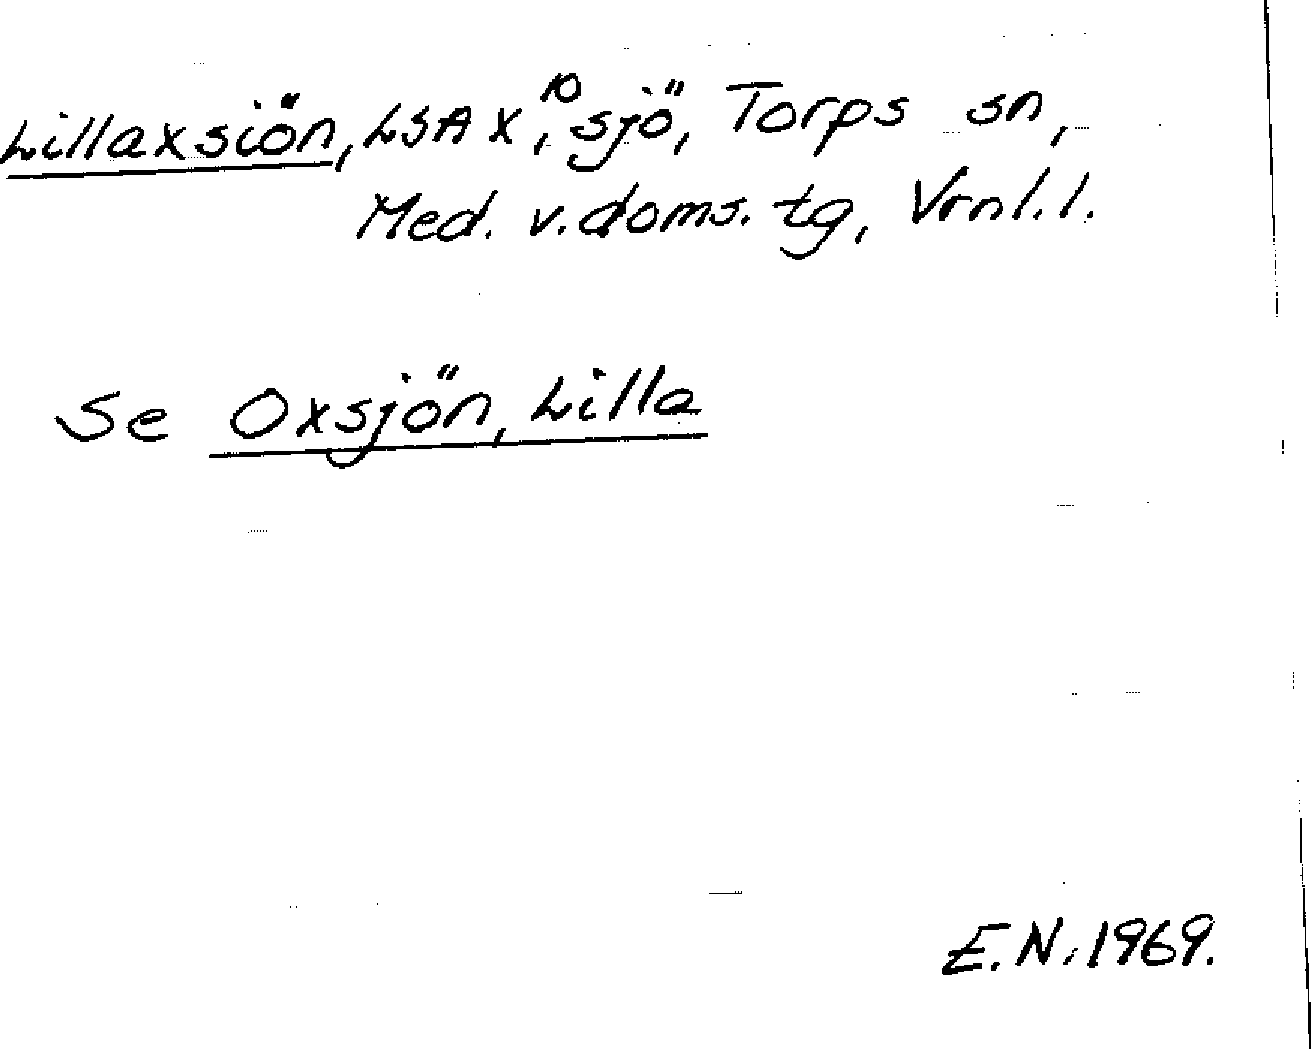 Lillaxsiön, LSA X,¹⁰ sjö, Torps sn,
Med. v. doms. tg, Vrnl. l.
Se Oxsjön, Lilla
E.N. 1969.